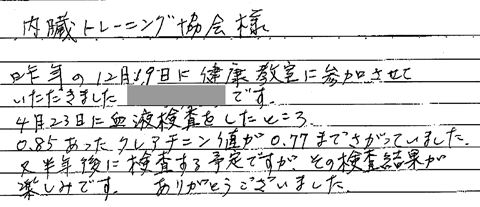 内臓トレーニング協会様
昨年の12月19日に健康教室に参加させて
いただきました です.
4月23日に血液検査をしたところ
0.85あったクレアチニン値が0.77までさがっていました.
又半年後に検査する予定ですが、その検査結果が
楽しみです. ありがとうございました.